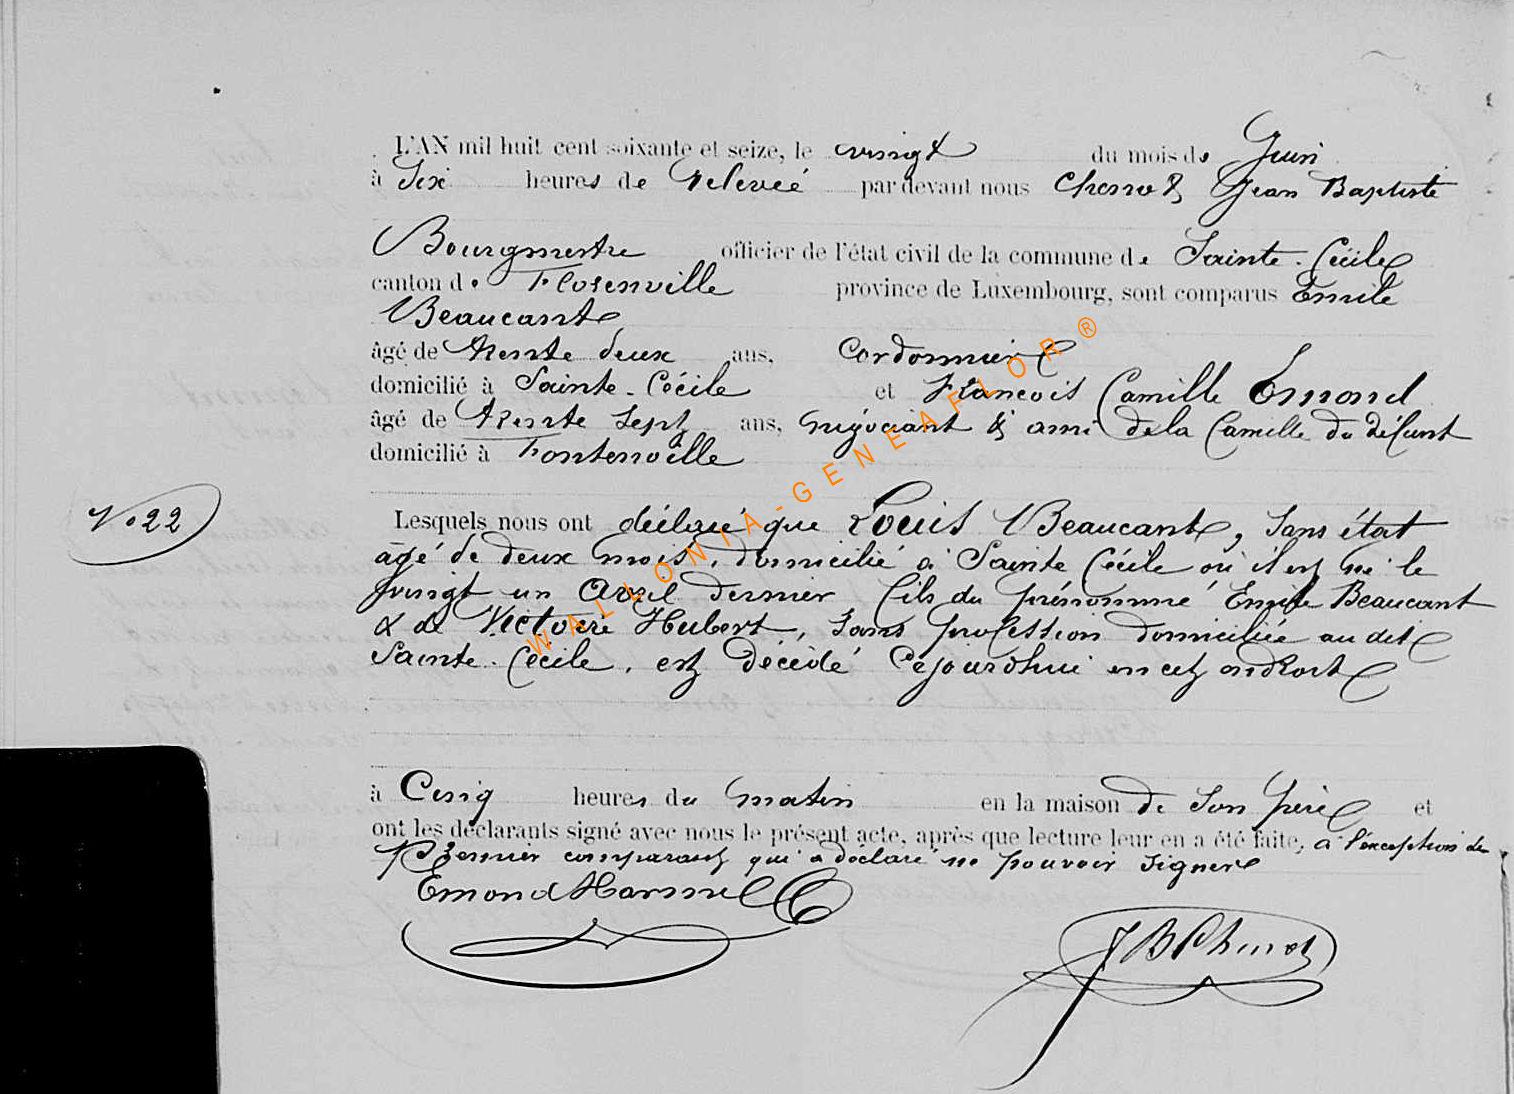 L'AN mil huit cent soixante et seize, le vingt du mois de Juin
à Six heures de relevée par devant nous Chenot Jean Baptiste
Bourgmestre officier de l'état civil de la commune de Sainte-Cécile
canton de Florenville province de Luxembourg, sont comparus Emile
Beaucant
âgé de trente deux ans, Cordonnier
domicilié à Sainte-Cécile et François Camille Emond
âgé de trente Sept ans, négociant & ami de la famille du défunt
domicilié à Fontenoille
N° 22
Lesquels nous ont déclaré que Louis Beaucant, Sans état
âgé de deux mois, domicilié à Sainte Cécile où il est né le
vingt un Avril dernier fils du prénommé Emile Beaucant
& de Victoire Hubert, Sans profession domiciliée au dit
Sainte-Cécile, est décédé Cejourdhui en cet endroit
à Cinq heures du matin en la maison de Son père et
ont les déclarants signé avec nous le présent acte, après que lecture leur en a été faite, à l'exception du
Premier comparant qui a déclaré ne pouvoir Signer
Emond Harmel
J B Chenot
WALLONIA-GENEAFLOR®